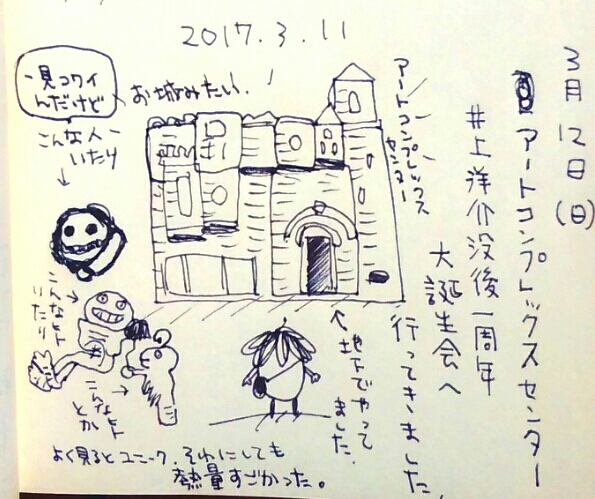 2017.3.11
3月12日(日)
アートコンプレックスセンター
井上洋介没後一周年
大誕生会へ
行ってきました。
アートコンプレックス
センター
お城みたい。
一見コワイ
んだけど
こんな人
いたり
こんなヒト
いたり
こんな
ヒト
とか
地下でやって
ました。
よく見るとユニーク。それにしても
熱量すごかった。